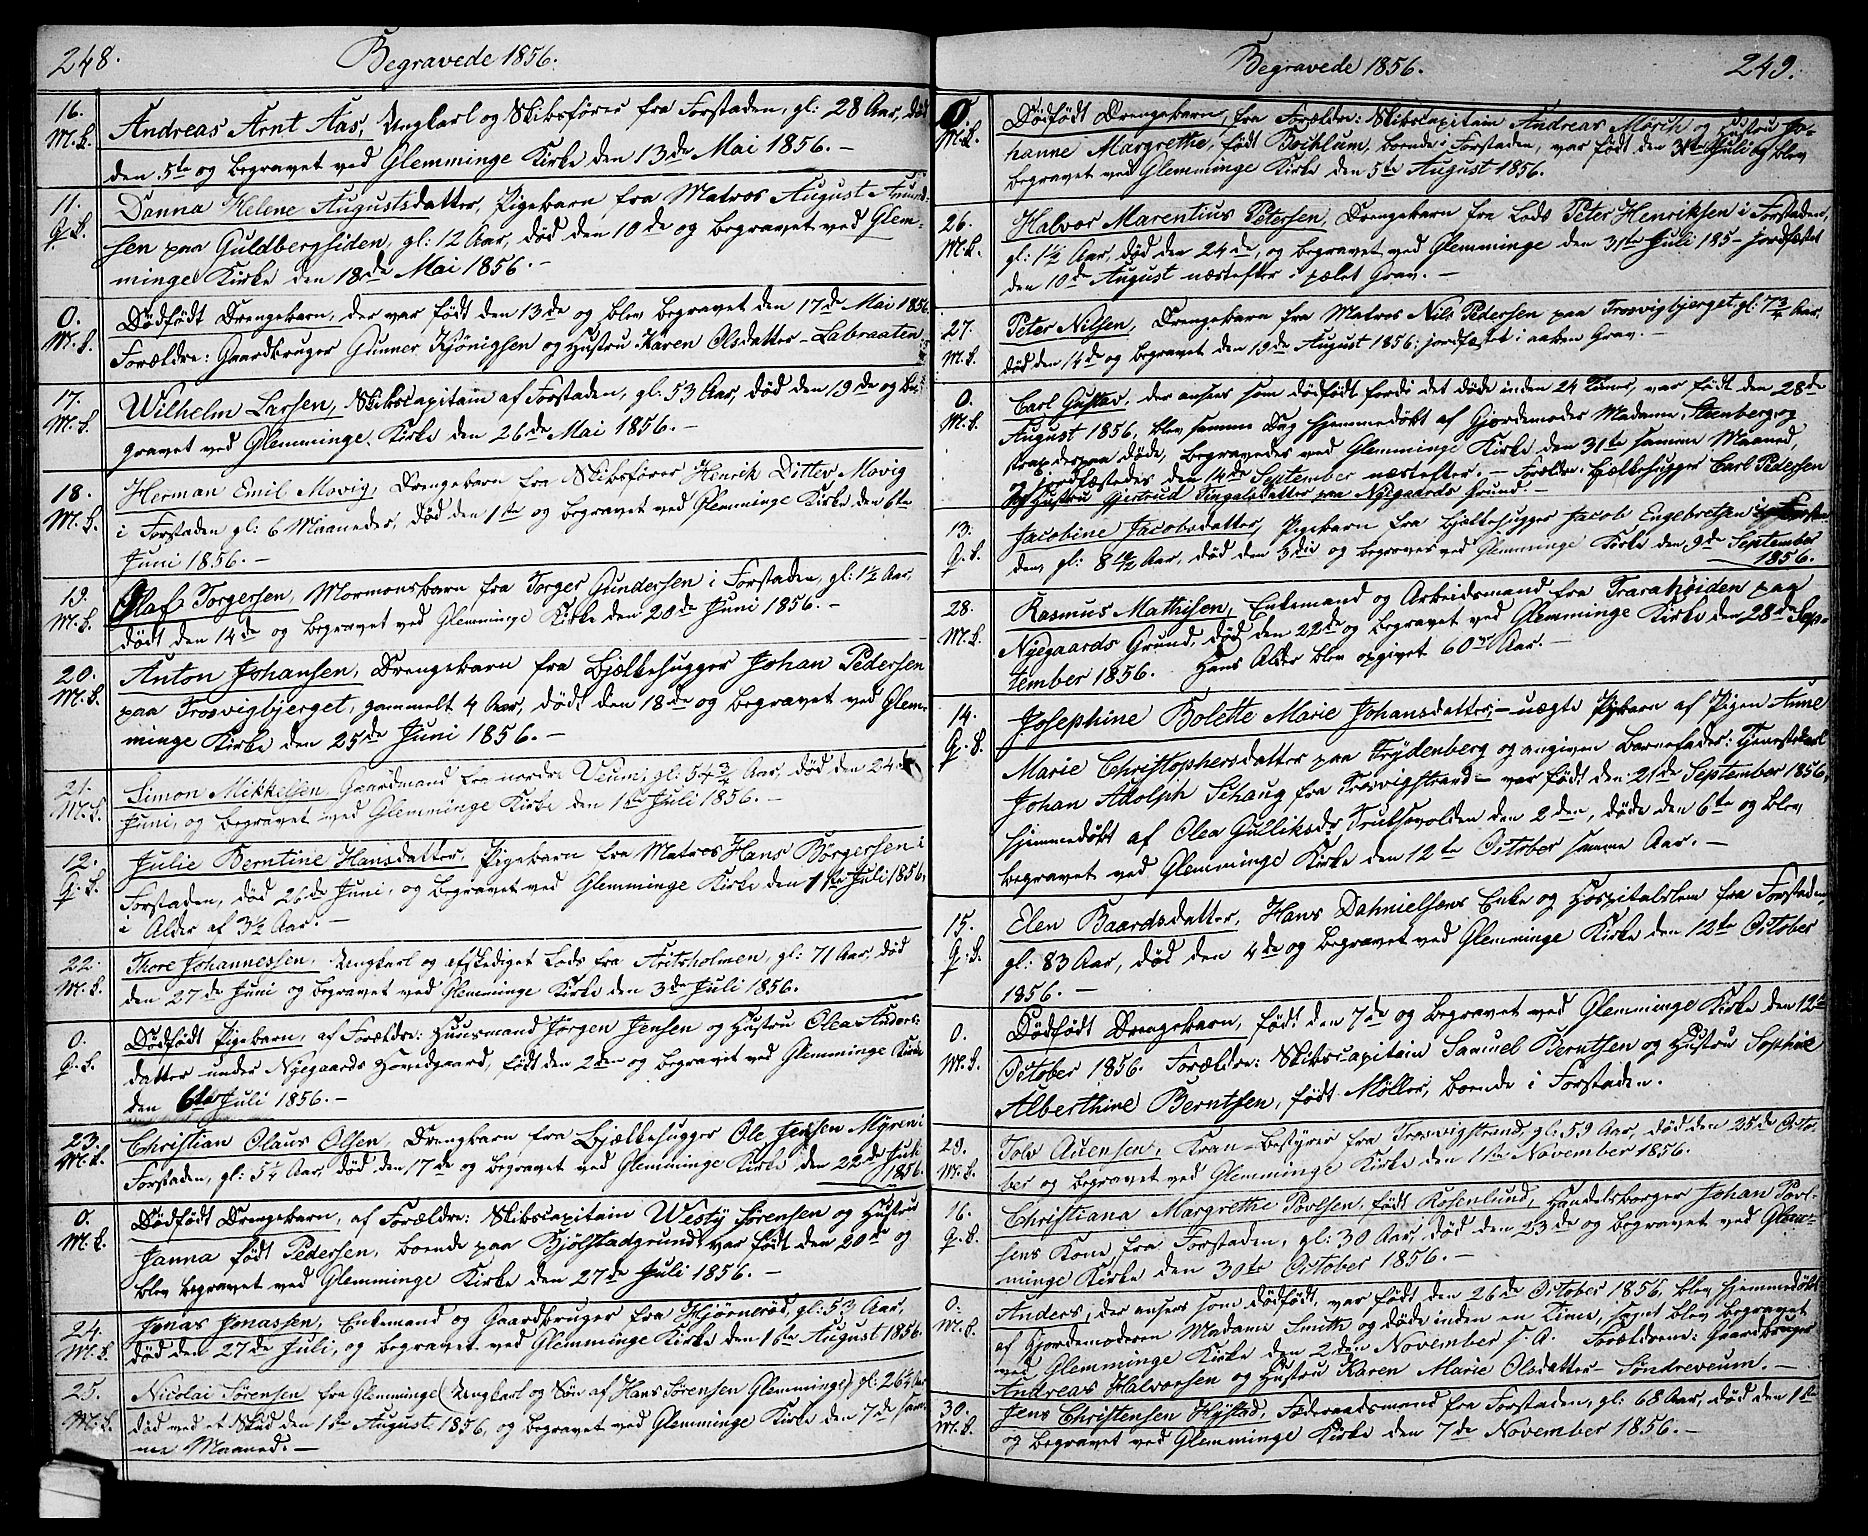 248.
Begravede 1856.
16. M.L. Andreas Arnt Aas, Ungkarl og Skibsfører fra Forstaden, gl: 28 Aar, død
den 5te og begravet ved Glemminge Kirke den 13de Mai 1856.-
11. Q.L. Danna Helene Augustsdatter, Pigebarn fra Matros August Amund-
sen paa Guldbergsiden, gl: 12 Aar, død den 10de og begravet ved Glem-
minge Kirke den 18de Mai 1856.-
0. M.L. Dødfødt Drengebarn, der var født den 13de og blev begravet den 17de Mai 1856
Forældre: Gaardbruger Gunner Kjönigsen og Hustru Karen Olsdatter - Labraaten
17. M.L. Wilhelm Larsen, Skibscapitain af Forstaden, gl: 53 Aar, død den 19de og be-
gravet ved Glemminge Kirke den 26de Mai 1856.-
18. M.L. Herman Emil Movig, Drengebarn fra Skibsfører Henrik Ditlev Movig
i Forstaden gl: 6 Maaneder, død den 1ste og begravet ved Glemminge Kirke den 6te
Juni 1856.-
19. M.L. Olaf Torgersen, Mormonsbarn fra Torger Gundersen i Forstaden, gl: 1½ Aar,
død den 14de og begravet ved Glemminge Kirke den 20de Juni 1856.-
20. M.L. Anton Johansen, Drengebarn fra Bjælkehugger Johan Pedersen
paa Trosvigbjerget, gammelt 4 Aar, død den 18de og begravet ved Glem-
minge Kirke den 25de Juni 1856.-
21. M.L. Simon Mikkelsen, Gaardmand fra nordre Veum, gl: 54¾ Aar, død den 24de
Juni, og begravet ved Glemminge Kirke den 1ste Juli 1856.-
12. Q.L. Julie Berntine Hansdatter, Pigebarn fra Matros Hans Børgersen i
Forstaden, død 26de Juni, og begravet ved Glemminge Kirke den 1ste Juli 1856,
i Alder af 3½ Aar.-
22. M.L. Thore Johannessen, Ungkarl og afskediget Lods fra Aritsholmen, gl: 71 Aar, død
den 27de Juni og begravet ved Glemminge Kirke den 3die Juli 1856.
0. Q.L. Dødfødt Pigebarn, af Forældre: Huusmand Jørgen Jensen og Hustru Olea Anders-
datter under Nyegaards Hovedgaard, født den 2den og begravet ved Glemminge Kirke
den 6te Juli 1856.-
23. M.L. Christian Olaus Olsen, Drengebarn fra Bjælkehugger Ole Jensen Myren i
Forstaden, gl: 5¼ Aar, død den 17de og begravet ved Glemminge Kirke den 22de Juli
1856.
0. M.L. Dødfødt Drengebarn, af Forældre: Skibscapitain Westÿ Sørensen og Hustru
Janna født Pedersen, boende paa Kjølstadgrund, var født den 20de og
blev begravet ved Glemminge Kirke den 27de Juli 1856.-
24. M.L. Jonas Jonassen, Enkemand og Gaardbruger fra Hjørnerød, gl: 53 Aar,
død den 27de Juli, og begravet ved Glemminge Kirke den 1ste August 1856.
25. M.L. Nicolai Sørensen fra Glemminge (Ungkarl og Søn af Hans Sørensen Glemminge) gl: 26¼ Aar
død ved et Skud den 1ste August 1856, og begravet ved Glemminge Kirke den 7de sam-
me Maaned.-
Begravede 1856.
249.
0. M.L. Dødfødt Drengebarn, fra Forældre: Skibscapitain Andreas Mörch og Hustru Jo-
hanne Margrethe, født Böchlum, boende i Forstaden, var født den 31te Juli og blev
begravet ved Glemminge Kirke den 5te August 1856.
26. M.L. Halvor Marentius Petersen, Drengebarn fra Lods Peter Henriksen i Forstaden,
gl: 1½ Aar, død den 24de, og begravet ved Glemminge den 31te Juli 185- jordfæstet
den 10de August næstefter i pælet Grav.-
27. M.L. Peter Nilsen, Drengebarn fra Matros Nils Pedersen paa Trosvigbjerget, gl: 7¾ Aar,
død den 14de og begravet den 19de August 1856; jordfæstet i aaben Grav.-
0. M.L. Carl Gustav, der ansees som dødfødt fordi det døde inden 24 Timer, var født den 28de
August 1856, blev samme Dag hjemmedøbt af Gjordemoder Madame Steenberg og
strax derpaa døde, begravedes ved Glemminge Kirke den 31te samme Maaned,
og jordfæstedes den 14de September næstefter.- Forældre: Bjælkehugger Carl Pedersen
og Hustru Gjertrud Tingulsdatter paa Nyegaards Grund.-
13. Q.L. Jacobine Jacobsdatter, Pigebarn fra Bjelkehugger Jacob Engebretsen i Forsta-
den, gl: 8 10/12 Aar, død den 3die og begraves ved Glemminge Kirke den 9de September
1856.
28. M.L. Rasmus Mathisen, Enkemand og Arbeidsmand fra Trarahøiden paa
Nyegaards Grund, død den 22de og begravet ved Glemminge Kirke den 28de Sep-
tember 1856. Hans Alder blev opgivet 60 Aar.-
14. Q.L. Josephine Bolette Marie Johansdatter,- uægte Pigebarn af Pigen Anne
Marie Christophersdatter paa Frydenberg og angiven Barnefader: Tjenestekarl
Johan Adolph Schaug fra Trosvigstrand - var født den 21de September 1856,
hjemmedøbt af Olea Gulliksdr Trulsevolden den 2den, døde den 6te og blev
begravet ved Glemminge Kirke den 12te October samme Aar.-
15. Q.L. Elen Baardsdatter, Hans Dahnielsens Enke og Hospitalslem fra Forstaden
gl: 83 Aar, død den 4de og begravet ved Glemminge Kirke den 12te October
1856.-
0. M.L. Dødfødt Drengebarn, født den 7de og begravet ved Glemminge Kirke den 12te
October 1856. Forældre: Skibscapitain Samuel Berntsen og Hustru Sophie
Alberthine Berntsen, født Møller, boende i Forstaden.
29. M.L. Tolv Auensen, Kran-Bestyrer fra Trosvigstrand, gl: 59 Aar, død den 25de Octo-
ber og begravet ved Glemminge Kirke den 1ste November 1856.
16. Q.L. Christiana Margrethe Povlsen, født Rosenlund, Handelsborger Johan Povl-
sens Kone, fra Forstaden, gl: 30 Aar, død den 23de og begravet ved Glem-
minge Kirke den 30te October 1856.-
0. M.L. Anders, der ansees som dødfødt, var født den 26de October 1856, blev hjemmedøbt
af Gjordemoderen Madame Smith og døde inden en Time, samt blev begravet
ved Glemminge Kirke den 2den November s. A. Forældrene: Gaardbruger
Andreas Halvorsen og Hustru Karen Marie Olsdatter Søndreveum.-
30. M.L. Jens Christensen Hystad, Føderaadsmand fra Forstaden, gl: 68 Aar, død den 1ste
og begravet ved Glemminge Kirke den 7de November 1856.-